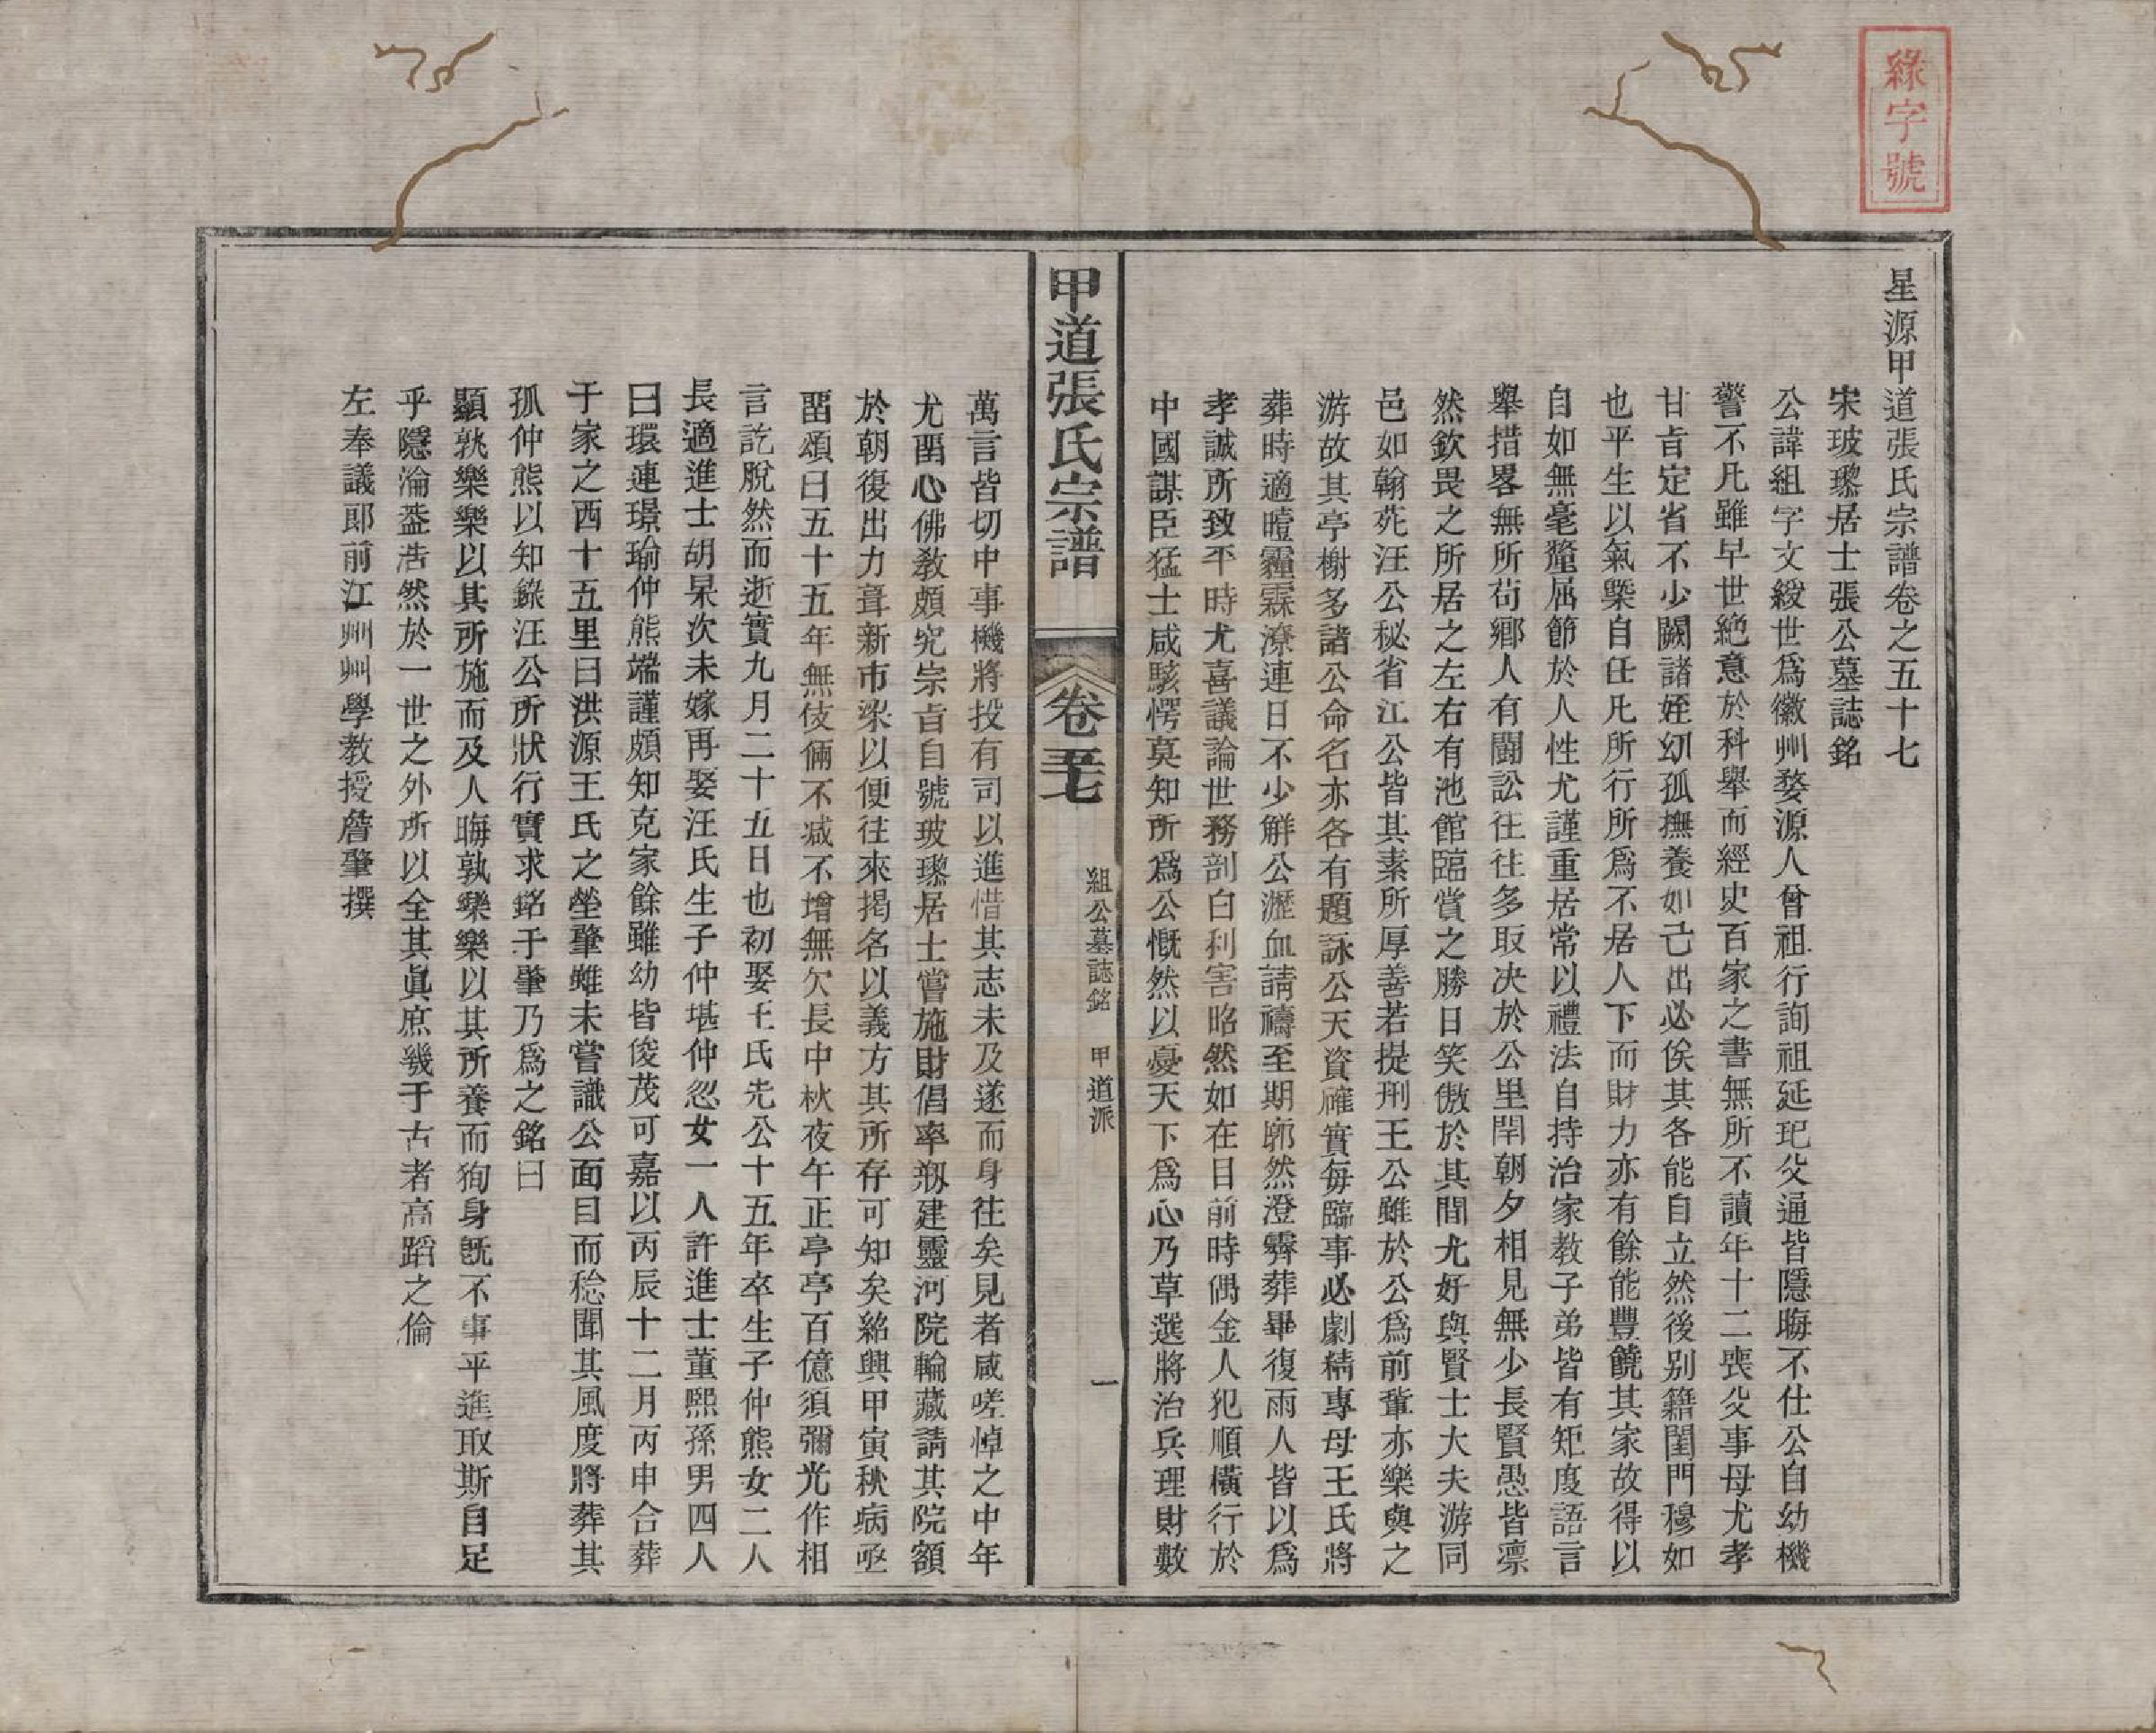 緣字號
星源甲道張氏宗譜卷之五十七
宋玻瓈居士張公墓誌銘
公諱組字文綬世爲徽州婺源人曾祖行詢祖延玘父通皆隱晦不仕公自幼機
警不凡雖早世絶意於科舉而經史百家之書無所不讀年十二喪父事母尤孝
甘旨定省不少闕諸姪幼孤撫養如己出必俟其各能自立然後别籍閨門穆如
也平生以氣槩自任凡所行所爲不居人下而財力亦有餘能豐饒其家故得以
自如無毫釐屈節於人性尤謹重居常以禮法自持治家教子弟皆有矩度語言
舉措畧無所苟鄉人有鬪訟往往多取决於公里閈朝夕相見無少長賢愚皆凛
然欽畏之所居之左右有池館臨賞之勝日笑傲於其間尤好與賢士大夫游同
邑如翰苑汪公秘省江公皆其素所厚善若提刑王公雖於公爲前輩亦樂與之
游故其亭榭多諸公命名亦各有題詠公天資確實每臨事必劇精專母王氏將
葬時適曀霾霖潦連日不少觧公瀝血請禱至期廓然澄霽葬畢復雨人皆以爲
孝誠所致平時尤喜議論世務剖白利害昭然如在目前時偶金人犯順橫行於
中國謀臣猛士咸駭愕莫知所爲公慨然以憂天下爲心乃草選將治兵理財數
甲道張氏宗譜
卷五十七
組公墓誌銘 甲道派
一
萬言皆切中事機將投有司以進惜其志未及遂而身往矣見者咸嗟悼之中年
尤畱心佛教頗究宗旨自號玻瓈居士嘗施財倡率剏建靈河院輪藏請其院額
於朝復出力葺新市梁以便往來揭名以義方其所存可知矣紹興甲寅秋病亟
畱頌曰五十五年無伎倆不減不增無欠長中秋夜午正亭亭百億須彌光作相
言訖脫然而逝實九月二十五日也初娶王氏先公十五年卒生子仲熊女二人
長適進士胡杲次未嫁再娶汪氏生子仲堪仲忽女一人許進士董熙孫男四人
曰環連璟瑜仲熊端謹頗知克家餘雖幼皆俊茂可嘉以丙辰十二月丙申合葬
于家之西十五里曰洪源王氏之塋肇雖未嘗識公面目而稔聞其風度將葬其
孤仲熊以知錄汪公所狀行實求銘于肇乃爲之銘曰
顯孰樂樂以其所施而及人晦孰樂樂以其所養而狥身旣不事平進取斯自足
乎隱淪葢浩然於一世之外所以全其眞庶幾于古者高蹈之倫
左奉議郎前江州州學教授詹肇撰